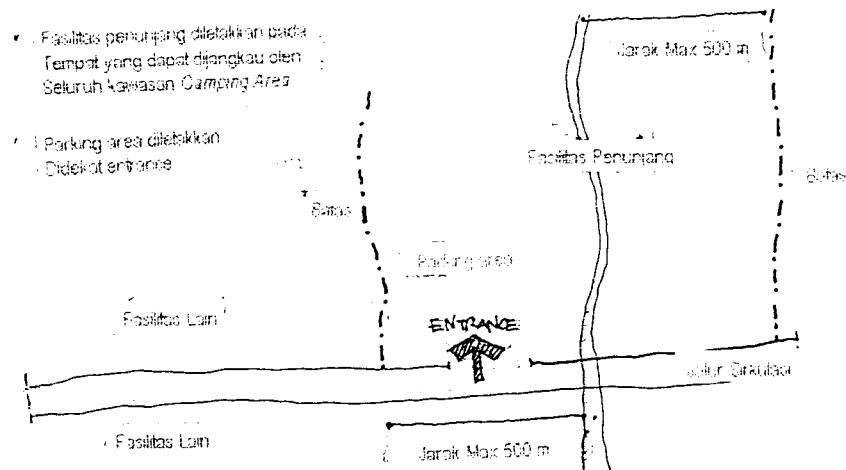 Fasilitas penunjang diletakkan pada
Tempat yang dapat dijangkau oleh
Seluruh kawasan Camping Area
Parking area diletakkan
Didekat entrance
Jarak Max 500 m
Fasilitas Penunjang
Batas
Batas
Parking area
Fasilitas Lain
ENTRANCE
Jalur Sirkulasi
Fasilitas Lain
Jarak Max 500 m